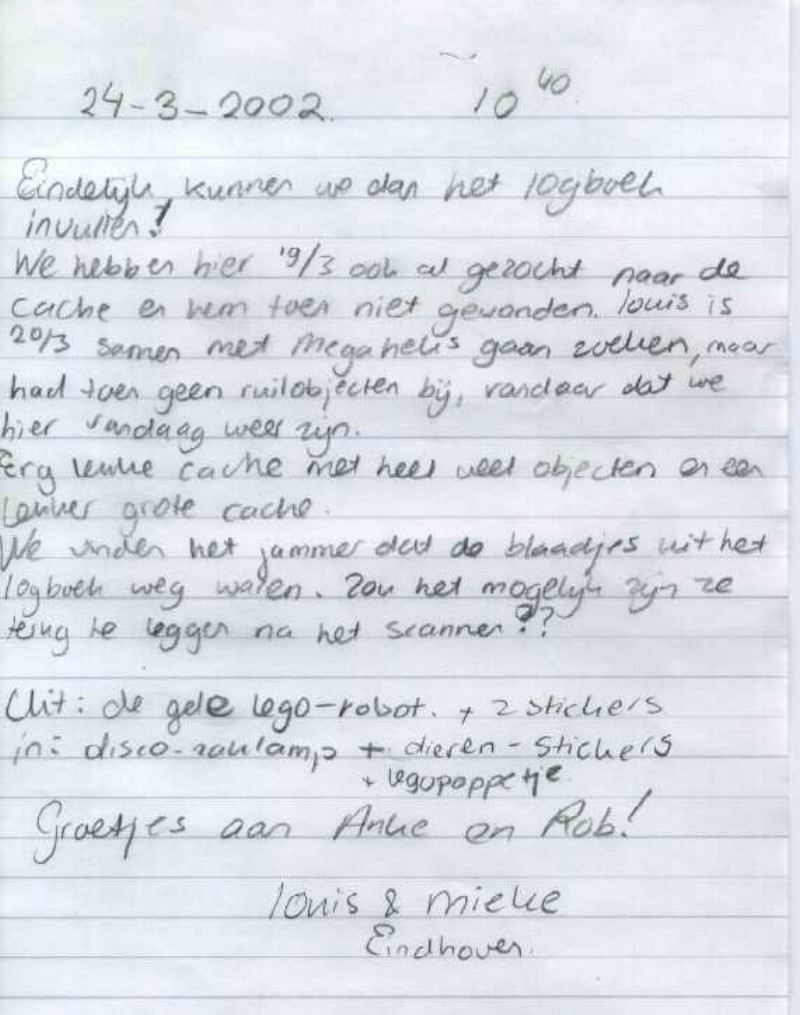 24-3-2002. 10 40
Eindelijk kunnen we dan het logboek
invullen!
We hebben hier 19/3 ook al gezocht naar de
cache en hem toen niet gevonden. Louis is
20/3 samen met Megahelis gaan zoeken, maar
had toen geen ruilobjecten bij, vandaar dat we
hier vandaag weer zijn.
Erg leuke cache met heel veel objecten en een
lekker grote cache.
We vinden het jammer dat de blaadjes uit het
logboek weg waren. Zou het mogelijk zijn ze
terug te leggen na het scannen??
Uit: de gele lego-robot. + 2 stickers
in: disco-zaklamp + dieren-stickers
+ legopoppetje
Groetjes aan Anke en Rob!
Louis & Mieke
Eindhoven.